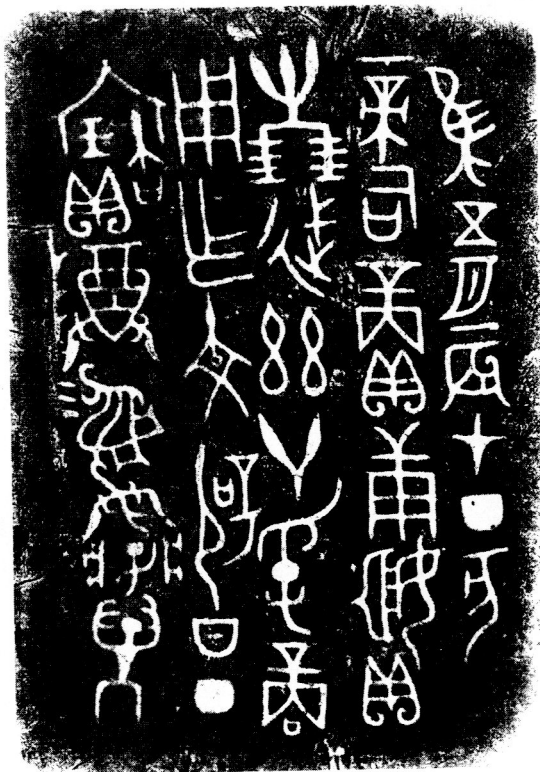 隹五月辰才丁亥
帝司賞庚姬貝
卅朋迖絲廿寽商
用乍文辟日丁
寶尊彝